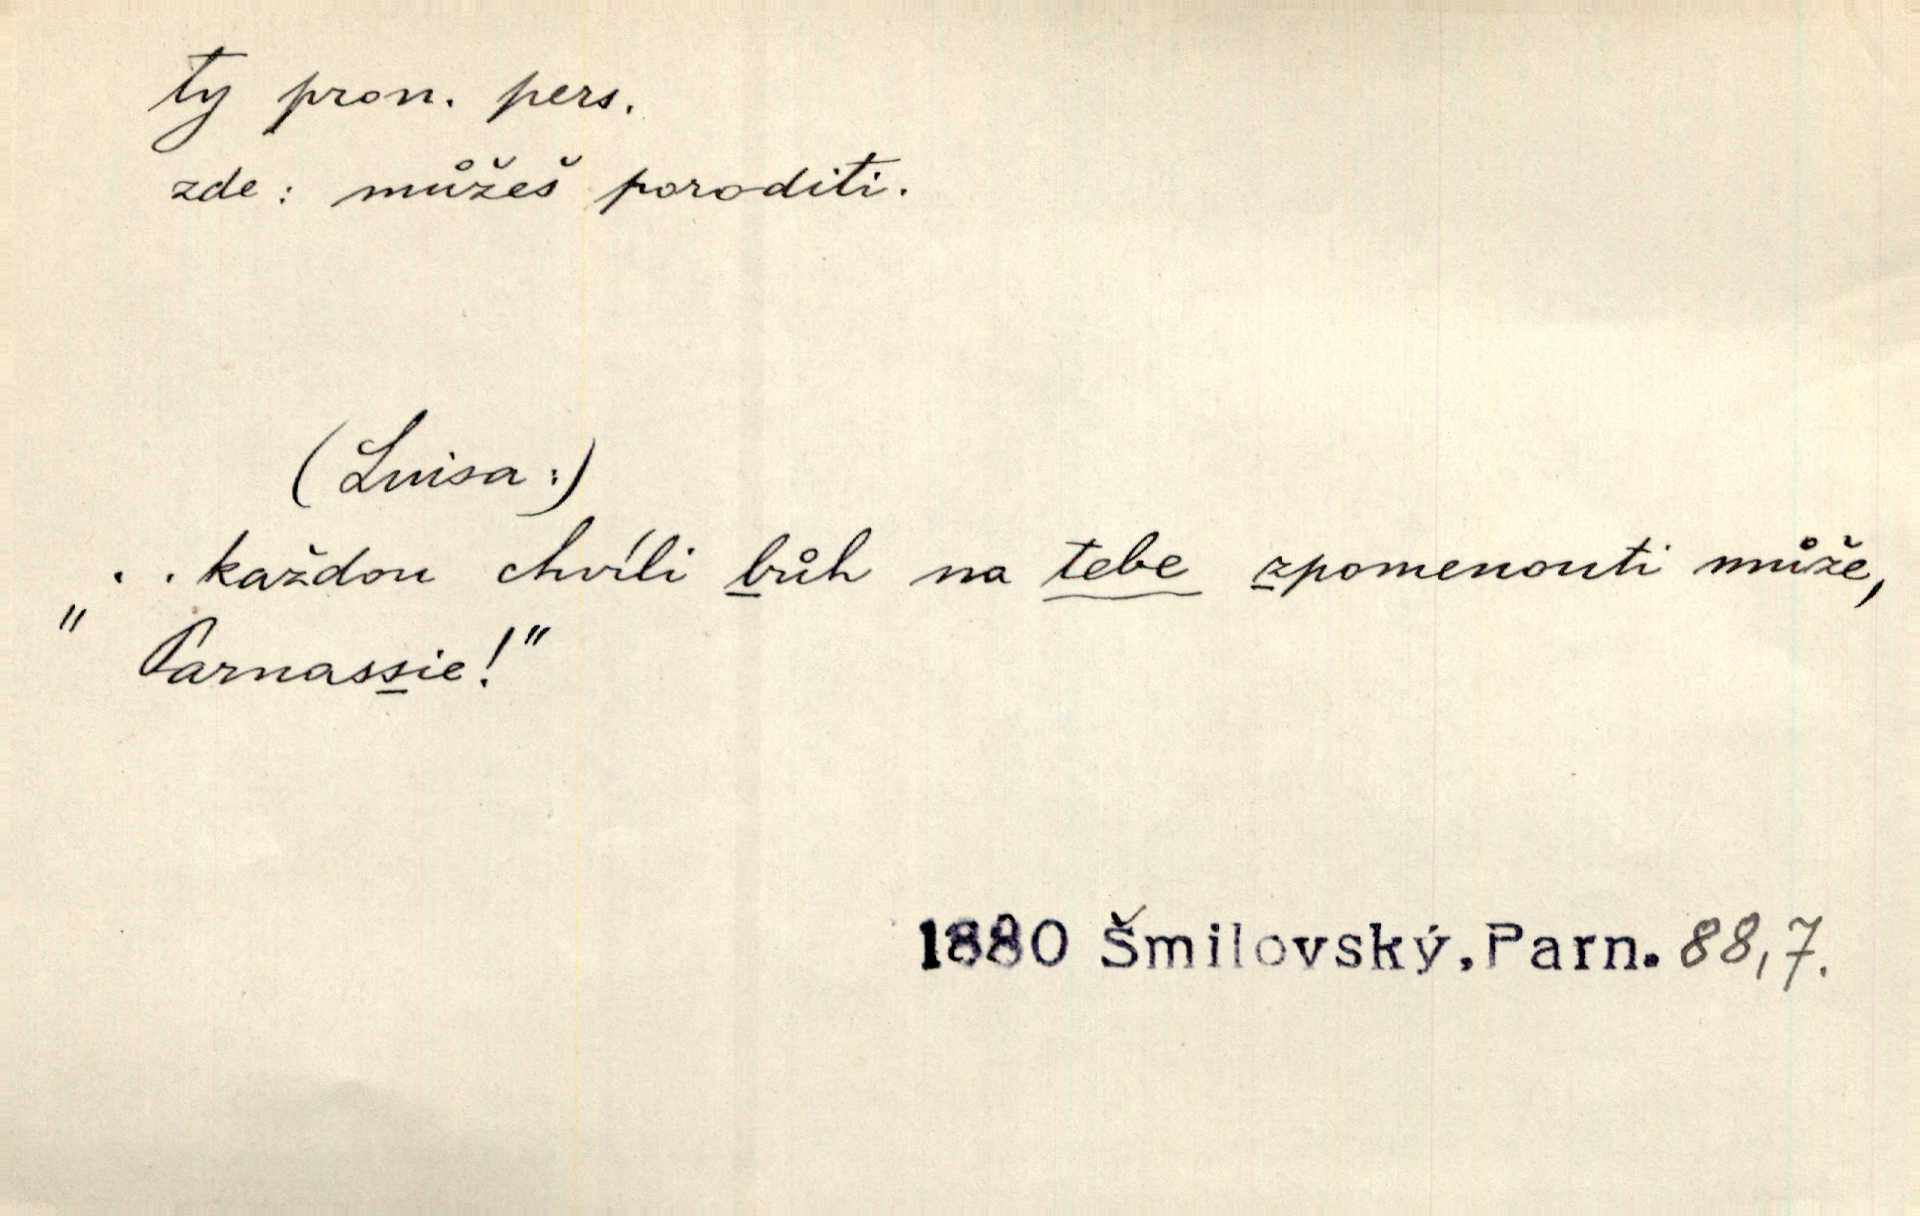 ty pron. pers.
zde: můžeš poroditi.
(Luisa:)
. . každou chvíli bůh na tebe zpomenouti může,
" Parnassie!"
1880 Šmilovský, Parn. 88,7.